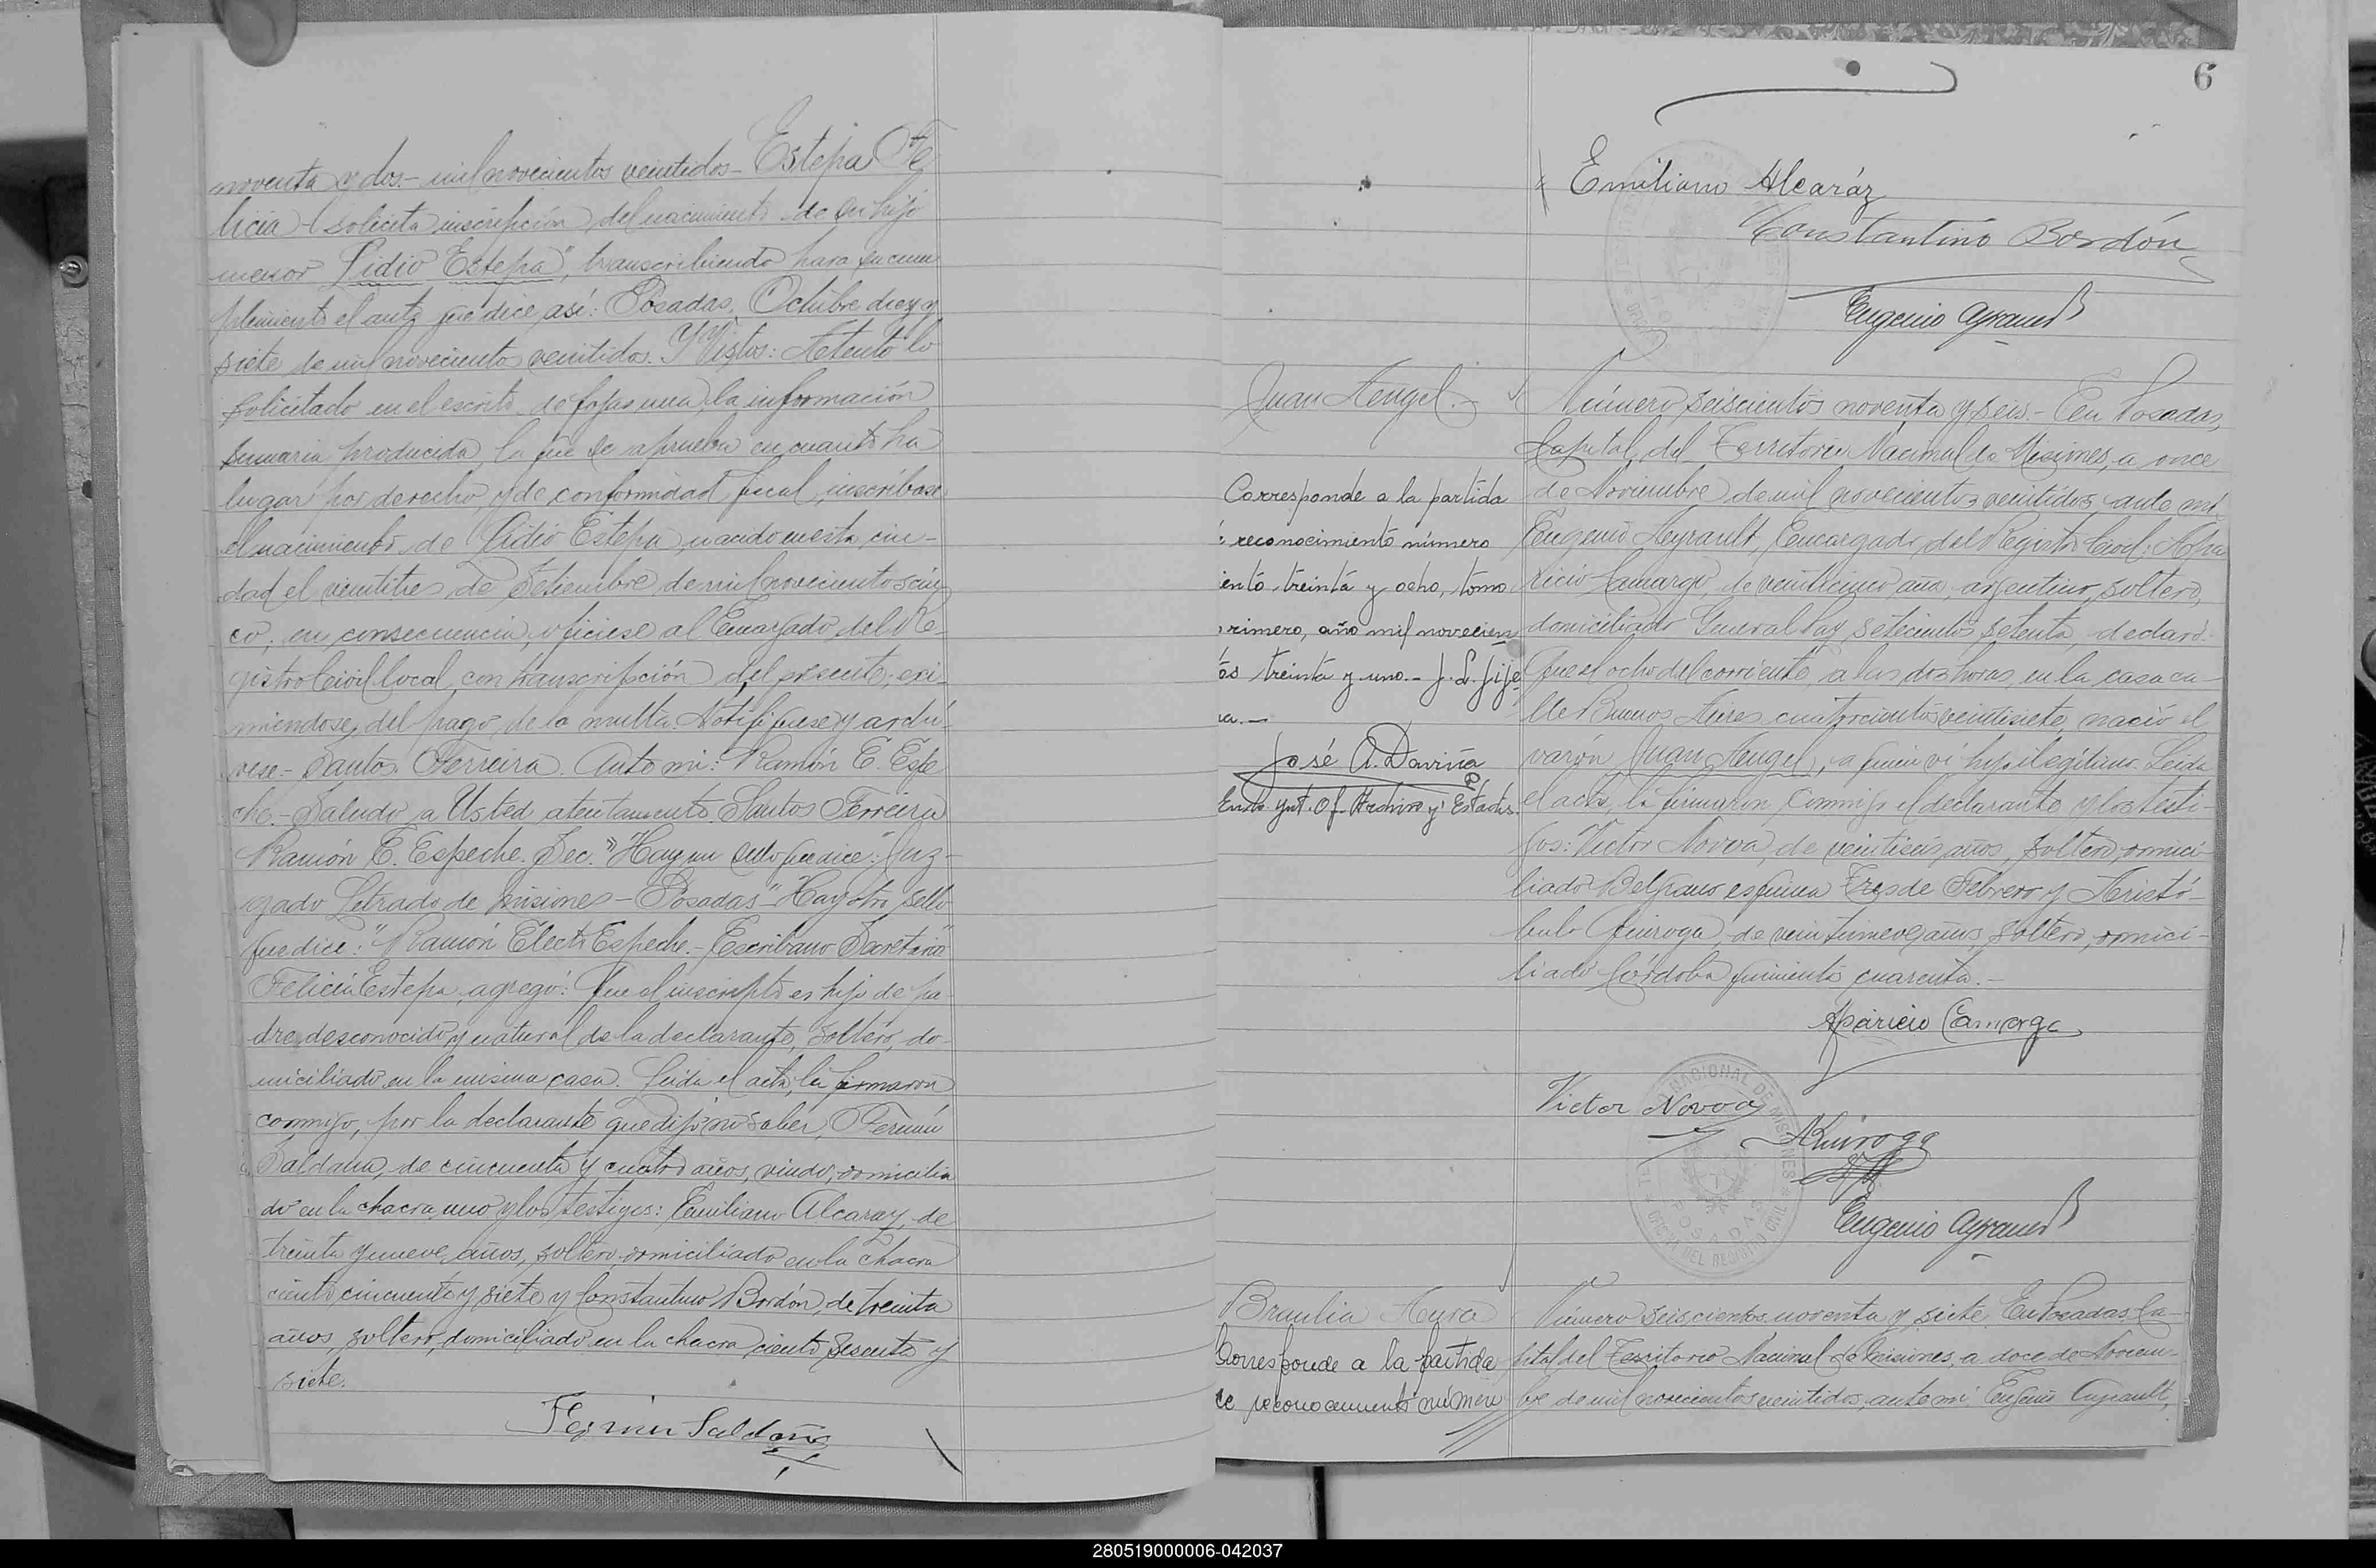 noventa y dos.- mil novecientos veintidos - Estepa Fe
licia - solicita inscripción del nacimiento de su hijo
menor "Lidio Estepa", transcribiendo para su cum
plimiento el auto que dice así: Posadas, Octubre diez y
siete de mil novecientos veintidos. Y Vistos: Atento lo
solicitado en el escrito de fojas una, la información
sumaria producida, la que se aprueba en cuanto ha
lugar por derecho, y de conformidad fiscal, inscríbase
el nacimiento de Lidio Estepa, nacido en esta ciu-
dad el veintitres de Setiembre de mil novecientos cin
co; en consecuencia, ofíciese al Encargado del Re-
gistro Civil local, con transcripción del presente, exi-
miendose del pago de la multa. Notifíquese y archí-
vese.- Santos Ferreira. Ante mi: Ramón E. Espe
che.- Saludo a Usted atentamente. Santos Ferreira
Ramón E. Espeche. Sec." Hay un sello que dice: "Juz-
gado Letrado de Misiones - Posadas" - Hay otro sello
que dice: "Ramón Espeche - Escribano Secretario"
Felicia Estepa, agregó: Que el inscripto es hijo de pa
dre desconocido y natural de la declarante, soltero, do-
miciliado en la misma casa. Leida el acta, la firmaron
conmigo, por la declarante que dijo no saber, Fermín
Saldaña, de cincuenta y cuatro años, viudo, domicilia
do en la chacra uno y los testigos: Emiliano Alcaraz, de
treinta y nueve años, soltero, domiciliado en la chacra
ciento cincuenta y siete y Constantino Bordón, de treinta
años, soltero, domiciliado en la chacra ciento sesenta y
siete.
Fermin Saldaña
6
Emiliano Alcaráz
Constantino Bordón
Eugenio Ayrault
Juan Angel.-
Corresponde a la partida
reconocimiento número
iento treinta y ocho, tomo
rimero, año mil novecien
os treinta y uno.- J. L. Fije
ra.-
José A. Daviña
Of. Archivo y Estadis.
Número seiscientos noventa y seis - En Posadas,
Capital del Territorio Nacional de Misiones, a once
de Noviembre de mil novecientos veintidos, ante mi
Eugenio Ayrault, Encargado del Registro Civil: Apa
ricio Camargo, de veinticinco años, argentino, soltero,
domiciliado General Paz setecientos setenta, declaró:
Que el ocho del corriente, a las dos horas, en la casa ca-
lle Buenos Aires cuatrocientos veintisiete, nació el
varón Juan Angel, a quien ví hijo ilegítimo. Leida
el acta, la firmaron conmigo el declarante y los testi-
gos: Victor Novoa, de veintiseis años, soltero, domici-
liado Belgrano esquina Tres de Febrero y Aristó-
bulo Quiroga, de veintinueve años, soltero, domici-
liado Córdoba quinientos cuarenta.-
Aparicio Camargo
Victor Novoa
A Quiroga
Eugenio Ayrault
NACIONAL DE MISIONES
POSADAS
OFICINA DEL REGISTRO CIVIL
Braulia
Corresponde a la partida
de reconocimiento número
Número seiscientos noventa y siete. En Posadas, Ca-
pital del Territorio Nacional de Misiones, a doce de Noviem-
bre de mil novecientos veintidos, ante mi Eugenio Ayrault,
280519000006-042037